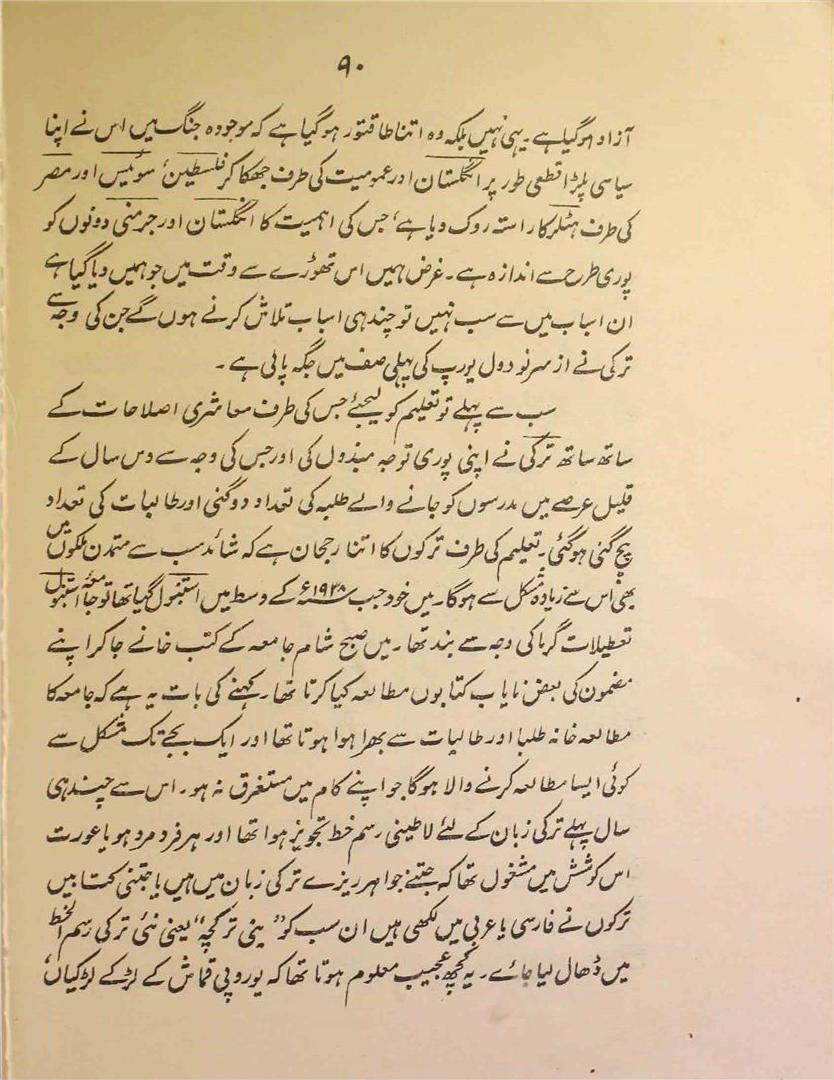 ۹۰
آزاد ہوگیا ہے۔ یہی نہیں بلکہ وہ اتنا طاقتور ہوگیا ہے کہ موجودہ جنگ میں اس نے اپنا
سیاسی پلڑا قطعی طور پر انگلستان اور عمومیت کی طرف جھکا کر فلسطین، سوئیس اور مصر
کی طرف ہٹلر کا راستہ روک دیا ہے، جس کی اہمیت کا انگلستان اور جرمنی دونوں کو
پوری طرح سے اندازہ ہے۔ غرض ہمیں اس تھوڑے سے وقت میں جو ہمیں دیا گیا ہے
ان اسباب میں سے سب نہیں تو چند ہی اسباب تلاش کرنے ہوں گے جن کی وجہ سے
ترکی نے از سر نو دول یورپ کی پہلی صف میں جگہ پائی ہے۔
سب سے پہلے تو تعلیم کو لیجئے جس کی طرف معاشری اصلاحات کے
ساتھ ساتھ ترکی نے اپنی پوری توجہ مبذول کی اور جس کی وجہ سے دس سال کے
قلیل عرصے میں مدرسوں کو جانے والے طلبہ کی تعداد دوگنی اور طالبات کی تعداد
پچ گنی ہوگئی۔ تعلیم کی طرف ترکوں کا اتنا رجحان ہے کہ شائد سب سے متمدن ملکوں میں
بھی اس سے زیادہ مشکل سے ہوگا۔ میں خود جب ۱۹۳۸ء کے وسط میں استنبول گیا تھا تو جامعۂ استنبول
تعطیلات گرما کی وجہ سے بند تھا۔ میں صبح شام جامعہ کے کتب خانے جا کر اپنے
مضمون کی بعض نایاب کتابوں مطالعہ کیا کرتا تھا۔ کہنے کی بات یہ ہے کہ جامعہ کا
مطالعہ خانہ طلبا اور طالبات سے بھرا ہوا ہوتا تھا اور ایک بجے تک مشکل سے
کوئی ایسا مطالعہ کرنے والا ہوگا جو اپنے کام میں مستغرق نہ ہو۔ اس سے چند ہی
سال پہلے ترکی زبان کے لئے لاطینی رسم خط تجویز ہوا تھا اور ہر فرد مرد ہو یا عورت
اس کوشش میں مشغول تھا کہ جتنے جواہر ریزے ترکی زبان میں ہیں یا جتنی کتابیں
ترکوں نے فارسی یا عربی میں لکھی ہیں ان سب کو "ینی ترکچہ" یعنی نئی ترکی رسم الخط
میں ڈھال لیا جائے۔ یہ کچھ عجیب معلوم ہوتا تھا کہ یوروپی قماش کے لڑکے لڑکیاں،